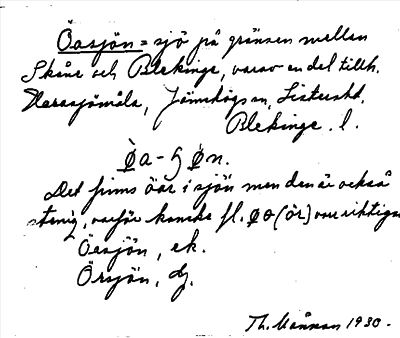 Öasjön = sjö på gränsen mellan
Skåne och Blekinge, varav en del tillh.
Harasjömåla, Jämshögs sn, Listers hd,
Blekinge l.
Øa-ʃøn.
Det finns öar i sjön men den är också
stenig, varför kanske fl. (ör) vore riktigare
Öasjön, ek.
Örsjön, dj.
Th. Månsson 1930.